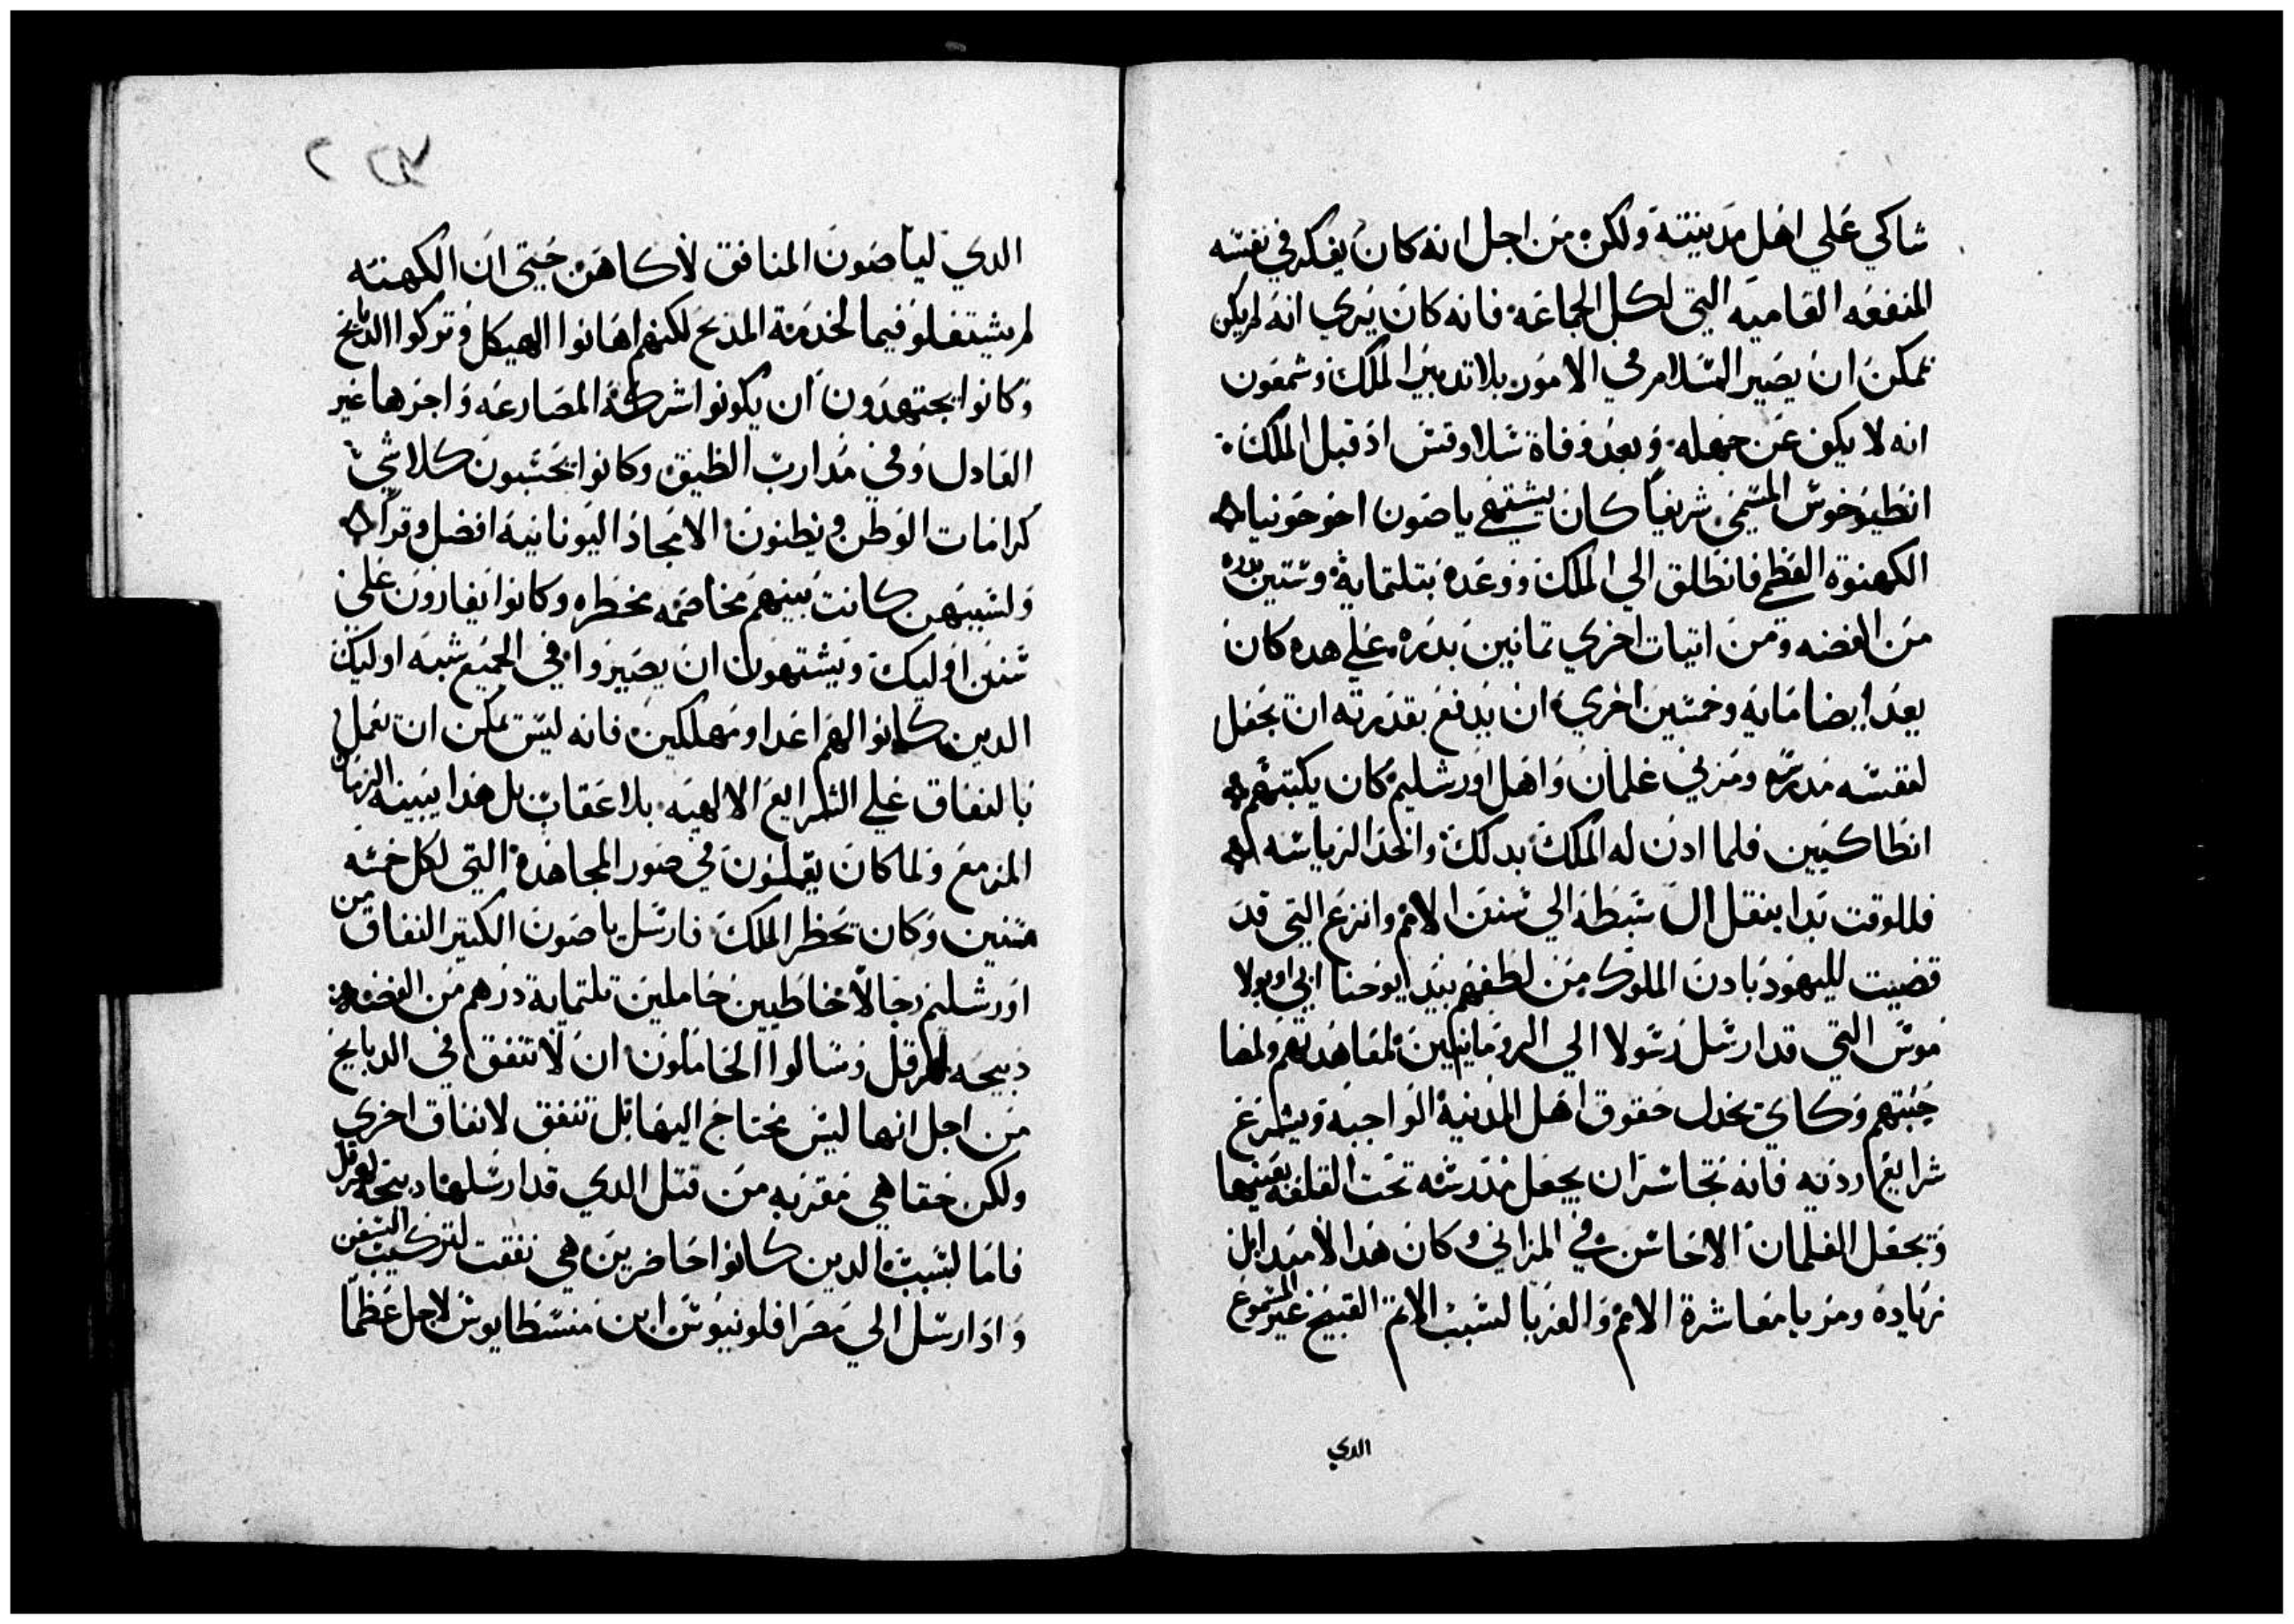 شاكي علي اهل مدينته ولكن من اجل انه كان يفكر في نفسه
المنفعه العاميه التي لكل الجماعه فانه كان يري انه لم يكن
ممكن ان يصير السلام في الامور بلا تدبير الملك وشمعون
انه لا يكف عن جهله وبعد وفاة سلاوقس اد قبل الملك
انطيوخوس المسمي شريفا كان يشتهي ياصون اخو حونيا
الكهنوة العظمي فانطلق الي الملك ووعده بتلتماية وستين بدره
من الفضه ومن اتيات اخري تمانين بدره علي هده كان
يعد ايضا مايه وخمسين اخري ان يدفع بقدرته ان يجعل
لنفسه مدرسه ومربي غلمان واهل اورشليم كان يكتبهم
انطاكيين فلما ادن له الملك بدلك واتخد الرياسه
فللوقت بدا ينقل ال سبطه الي سنن الامم وانزع التي قد
قضيت لليهود بادن الملوك من لطفهم بيد ايوحنا ابي اوبولا
موس التي قد ارسل رسولا الي الرومانيين لمعاهدتهم ولمصا
حبتهم وكان يخدل حقوق اهل المدنية الواجبه ويشرع
شرايع اردته فانه تجاسر ان يجعل مدرسه تحت القلعه بعينها
ويجعل الغلمان الاحاسن في المزاني وكان هدا لا مبدا بل
زياده ومربا معاشرة الامم والغربا لسبب الاتم القبيح غير المسموع
الدي
الدي لياصون المنافق لا كاهن حتي ان الكهنه
لم يشتغلو فيما لخدمة المدبح لكنهم اهانوا الهيكل وتركوا الدبايح
وكانوا يجتهدون ان يكونوا شركة المصارعه واجرها غير
العادل وفي مدارب الظيق وكانوا يحسبون كلا شي
كرامات الوطن ويظنون الامجاد اليونانيه افضل وقرا
ولسببهن كانت بينهم مخاصمه مخطره وكانوا يغارون علي
سنن اوليك ويشتهون ان يصيروا في الجميع شبه اوليك
الدين كانوا لهم اعدا ومهلكين فانه ليس يمكن ان تعمل
بالنفاق علي الشرايع الالهيه بلا عقاب بل هدا يبينه الزمان
المزمع ولما كان يعملون في صور المجاهدة التي لكل خمسه
سنين وكان يحظر الملك فارسل ياصون الكتير النفاق من
اورشليم رجالا خاطيين حاملين تلتماية درهم من الفضه
دبيحه لهرقل وسالوا الحاملون ان لا تنفق في الدبايح
من اجل انها ليس يحتاج اليها بل تنفق لانفاق اخري
ولكن حقا هي مقربه من قبل الدي قد ارسلها دبيحه لهرقل
فاما لسبب الدين كانوا حاضرين هي نفقت لتركيب السفن
واد ارسل الي مصر افلونيوس ابن منسطايوس لاجل عظما